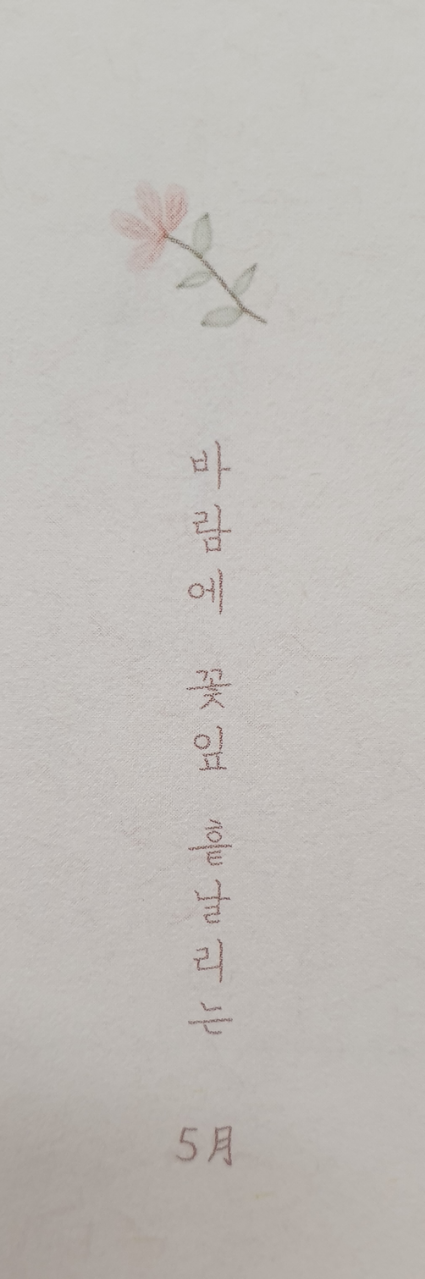 바람에 꽃잎 흩날리는
5月